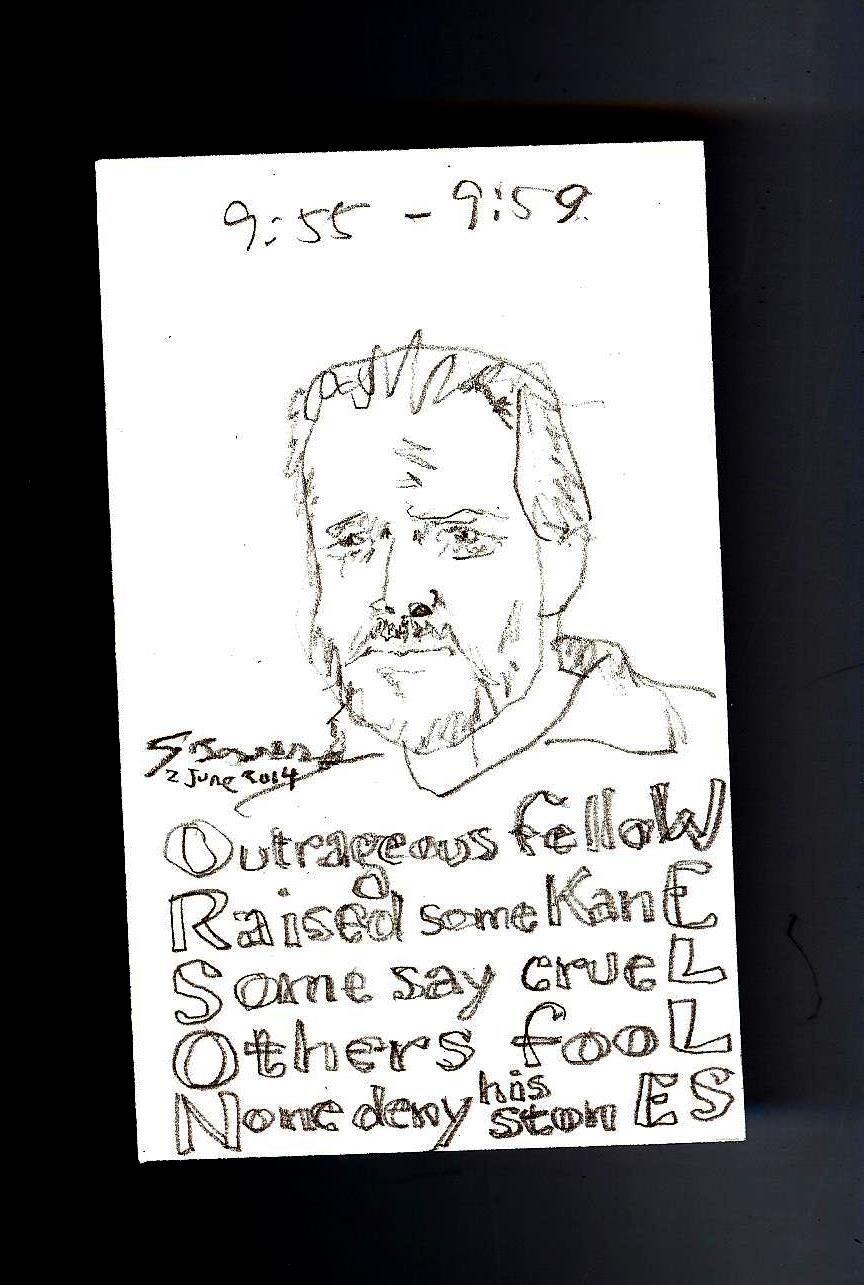 9:55 - 9:59
2 June 2014
Outrageous felloW
Raised some KanE
Some say crueL
Others fooL
None deny his stonES